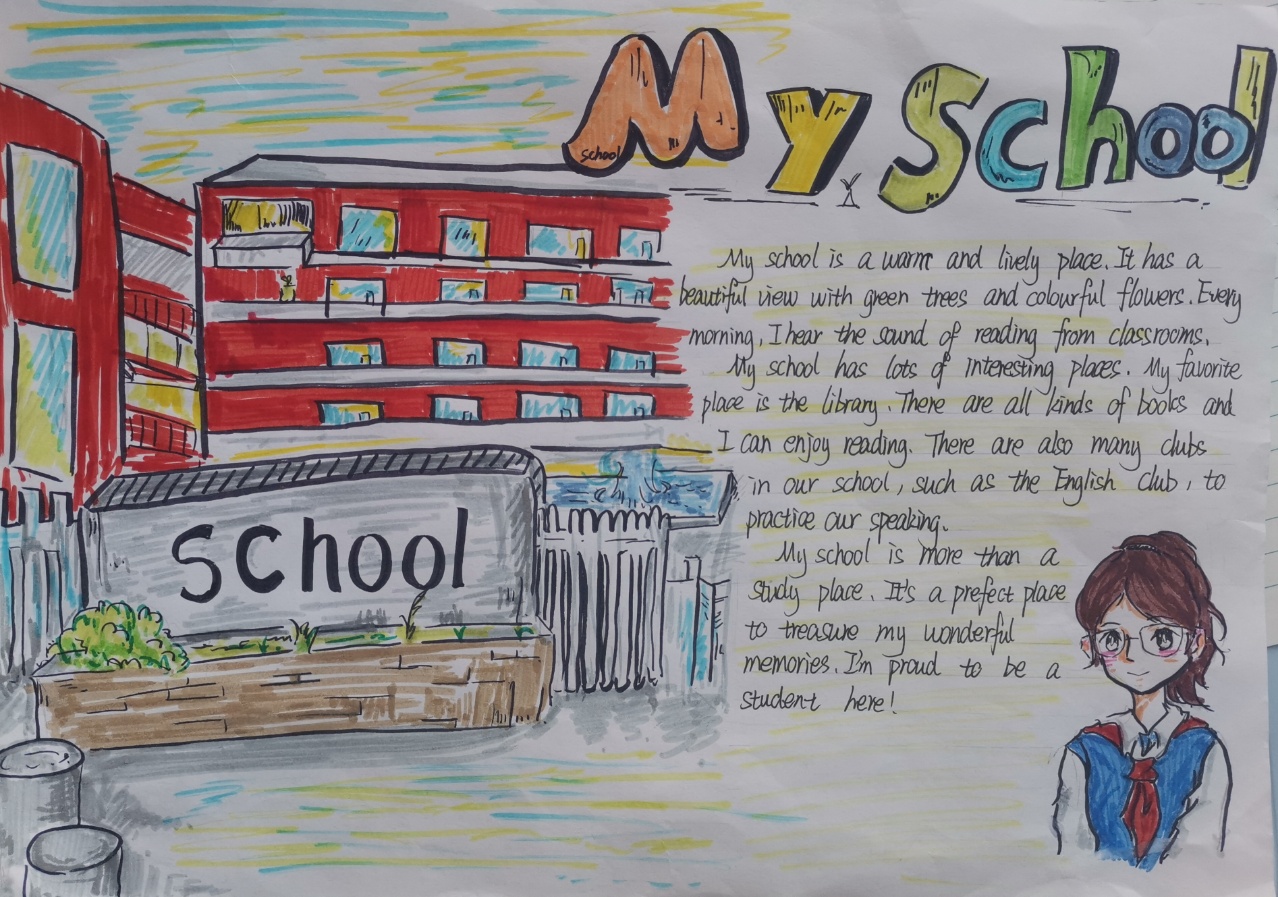 My School
school
My school is a warm and lively place. It has a
beautiful view with green trees and colourful flowers. Every
morning, I hear the sound of reading from classrooms.
My school has lots of interesting places. My favorite
place is the library. There are all kinds of books and
I can enjoy reading. There are also many clubs
in our school, such as the English club, to
practice our speaking.
My school is more than a
study place. It's a prefect place
to treasure my wonderful
memories. I'm proud to be a
student here!
School